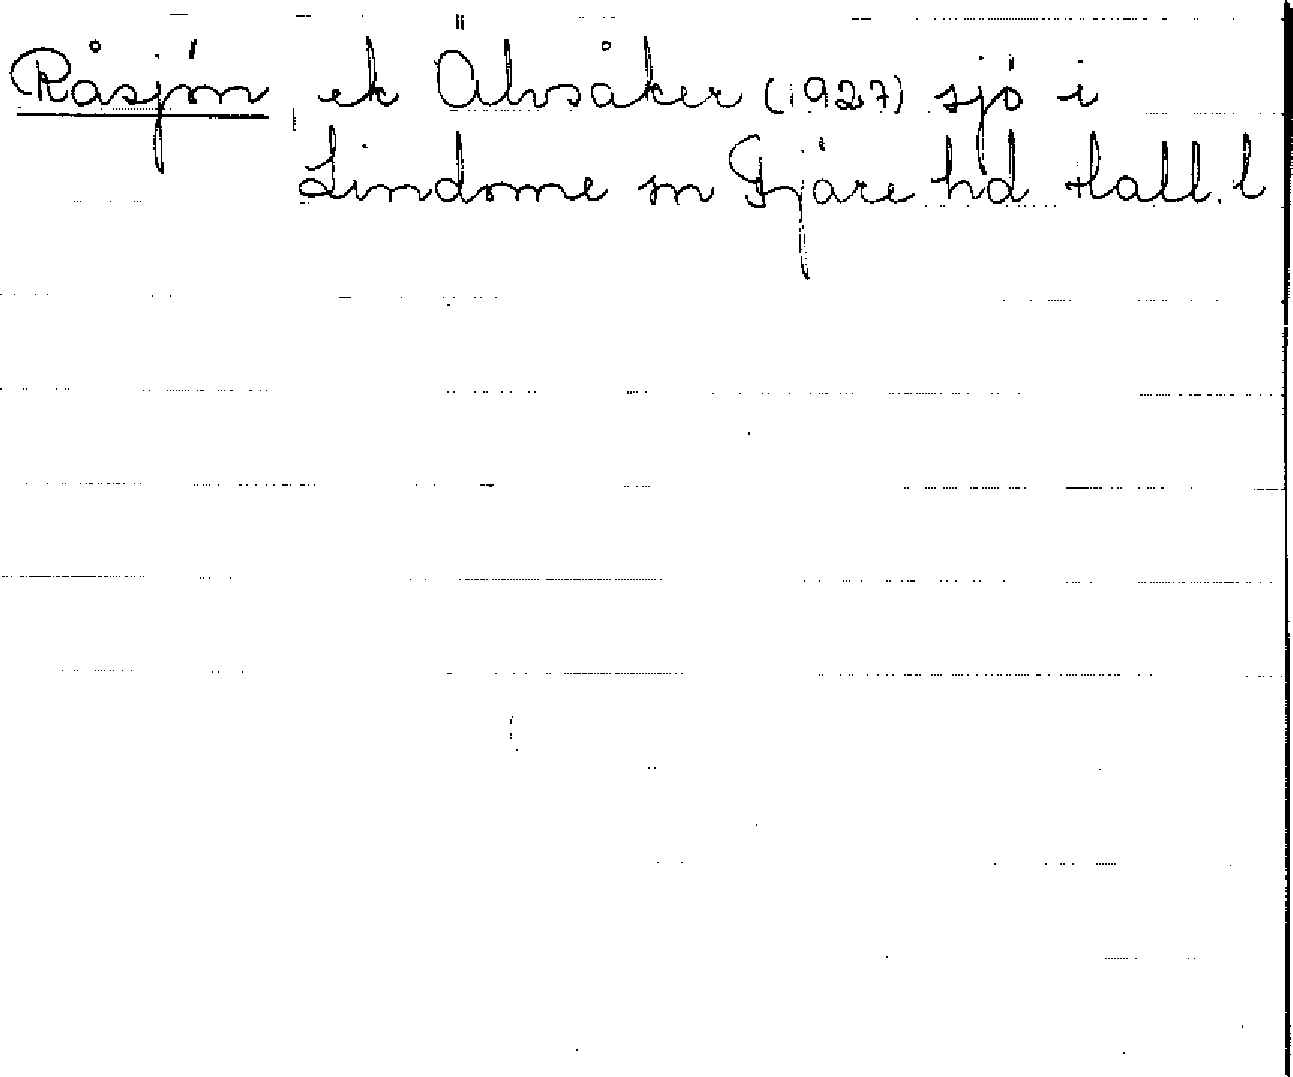 Råsjön ek Älvsåker (1927) sjö i
Lindome sn Fjäre hd Hall. l